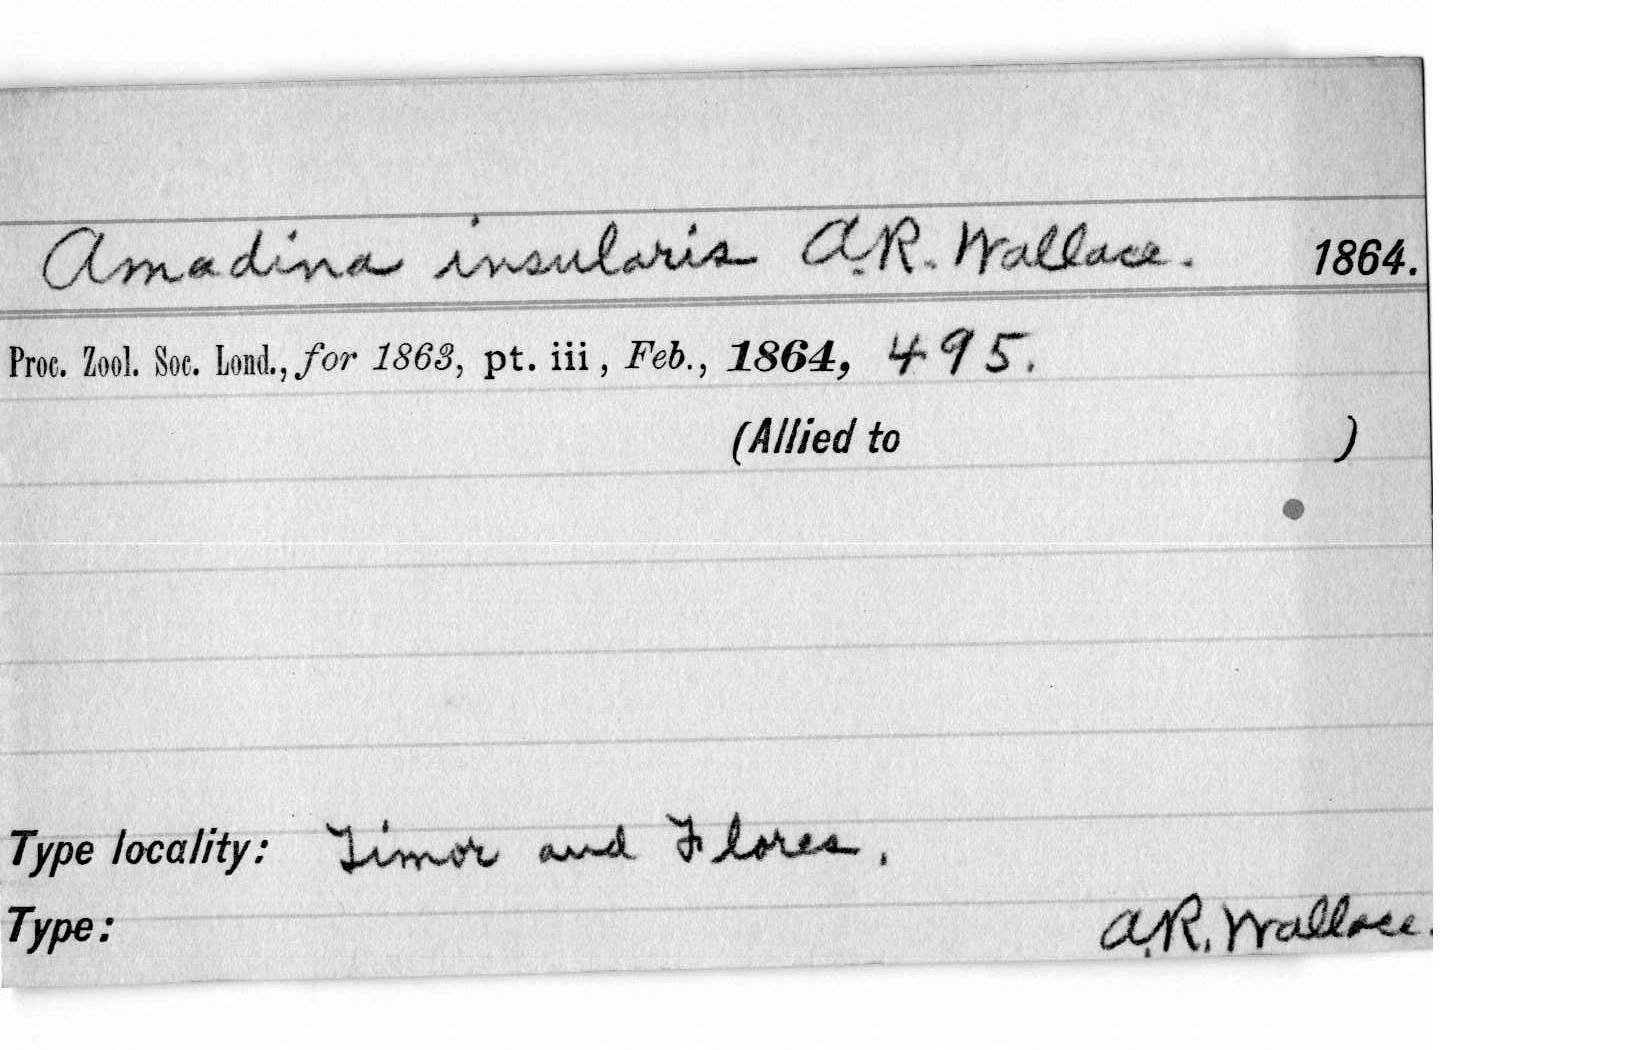 Amadina insularis A.R. Wallace. 1864.
Proc. Zool. Soc. Lond., for 1863, pt. iii, Feb., 1864, 495.
(Allied to )
Type locality: Timor and Flores.
Type: A.R. Wallace.